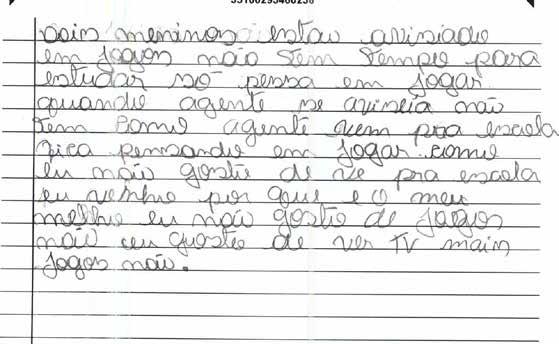 dois meninos estão avisiado
em jogos não tem tempo para
estudar só pessa em jogar
quando agente se avincia não
tem como agente vem pra escola
fica pensando em jogar como
eu não gosto de ve pra escola
eu venho por que e o meu
melho eu não gosto de jogos
não eu gosto de ver TV mais
jogos não.